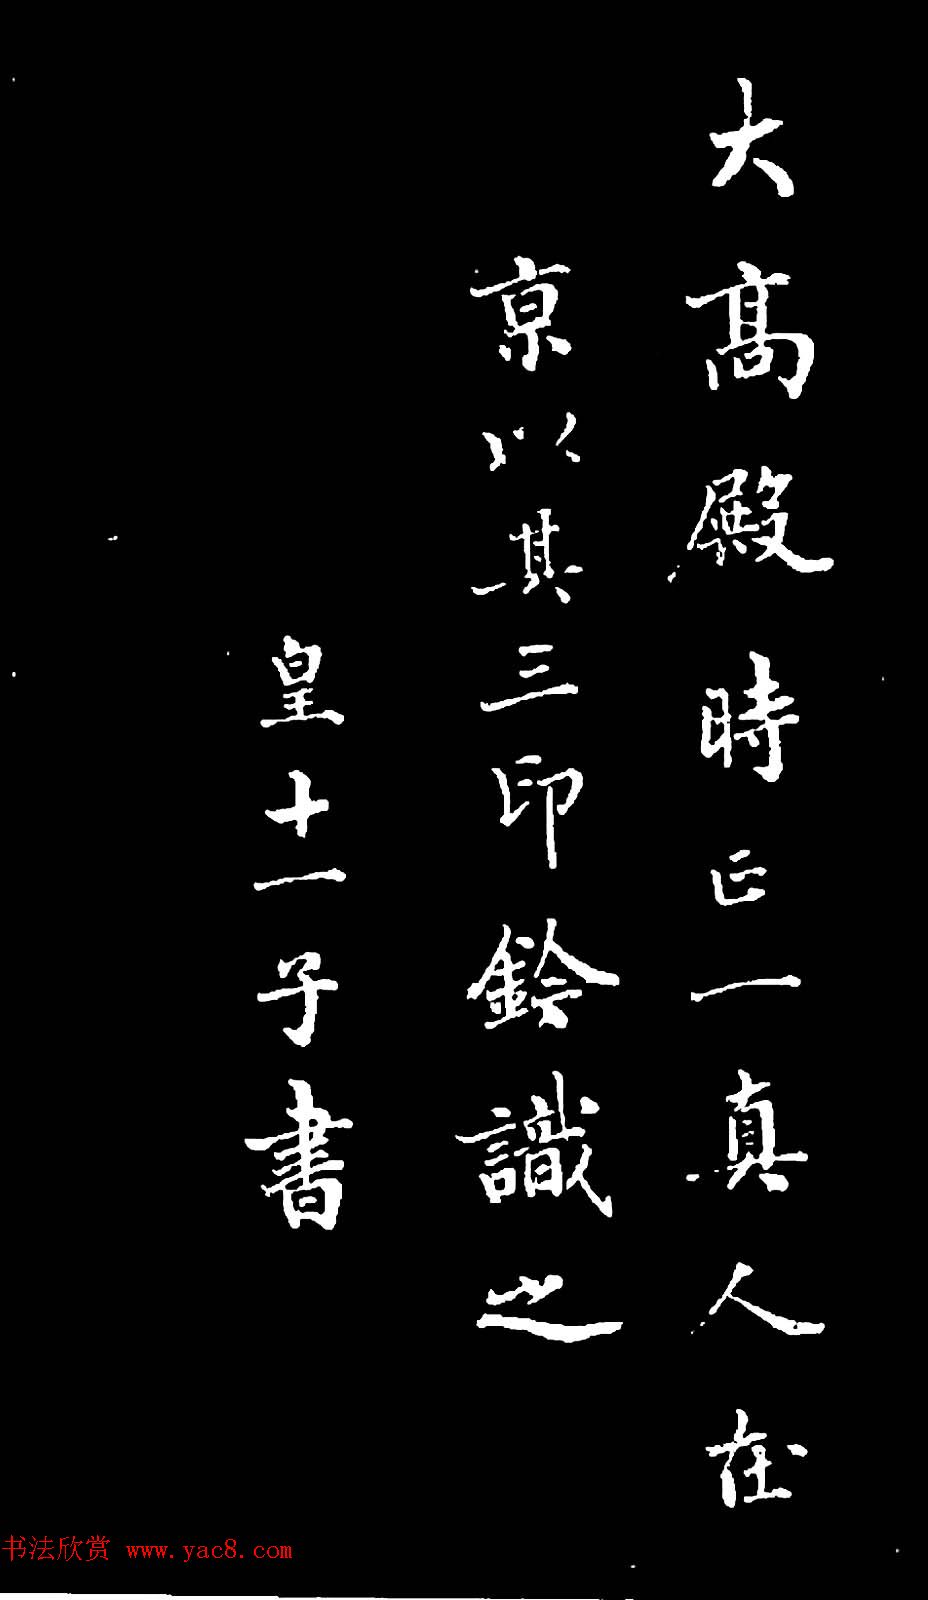 大高殿時正一真人在
京以其三印鈐識之
皇十一子書
书法欣赏 www.yac8.com